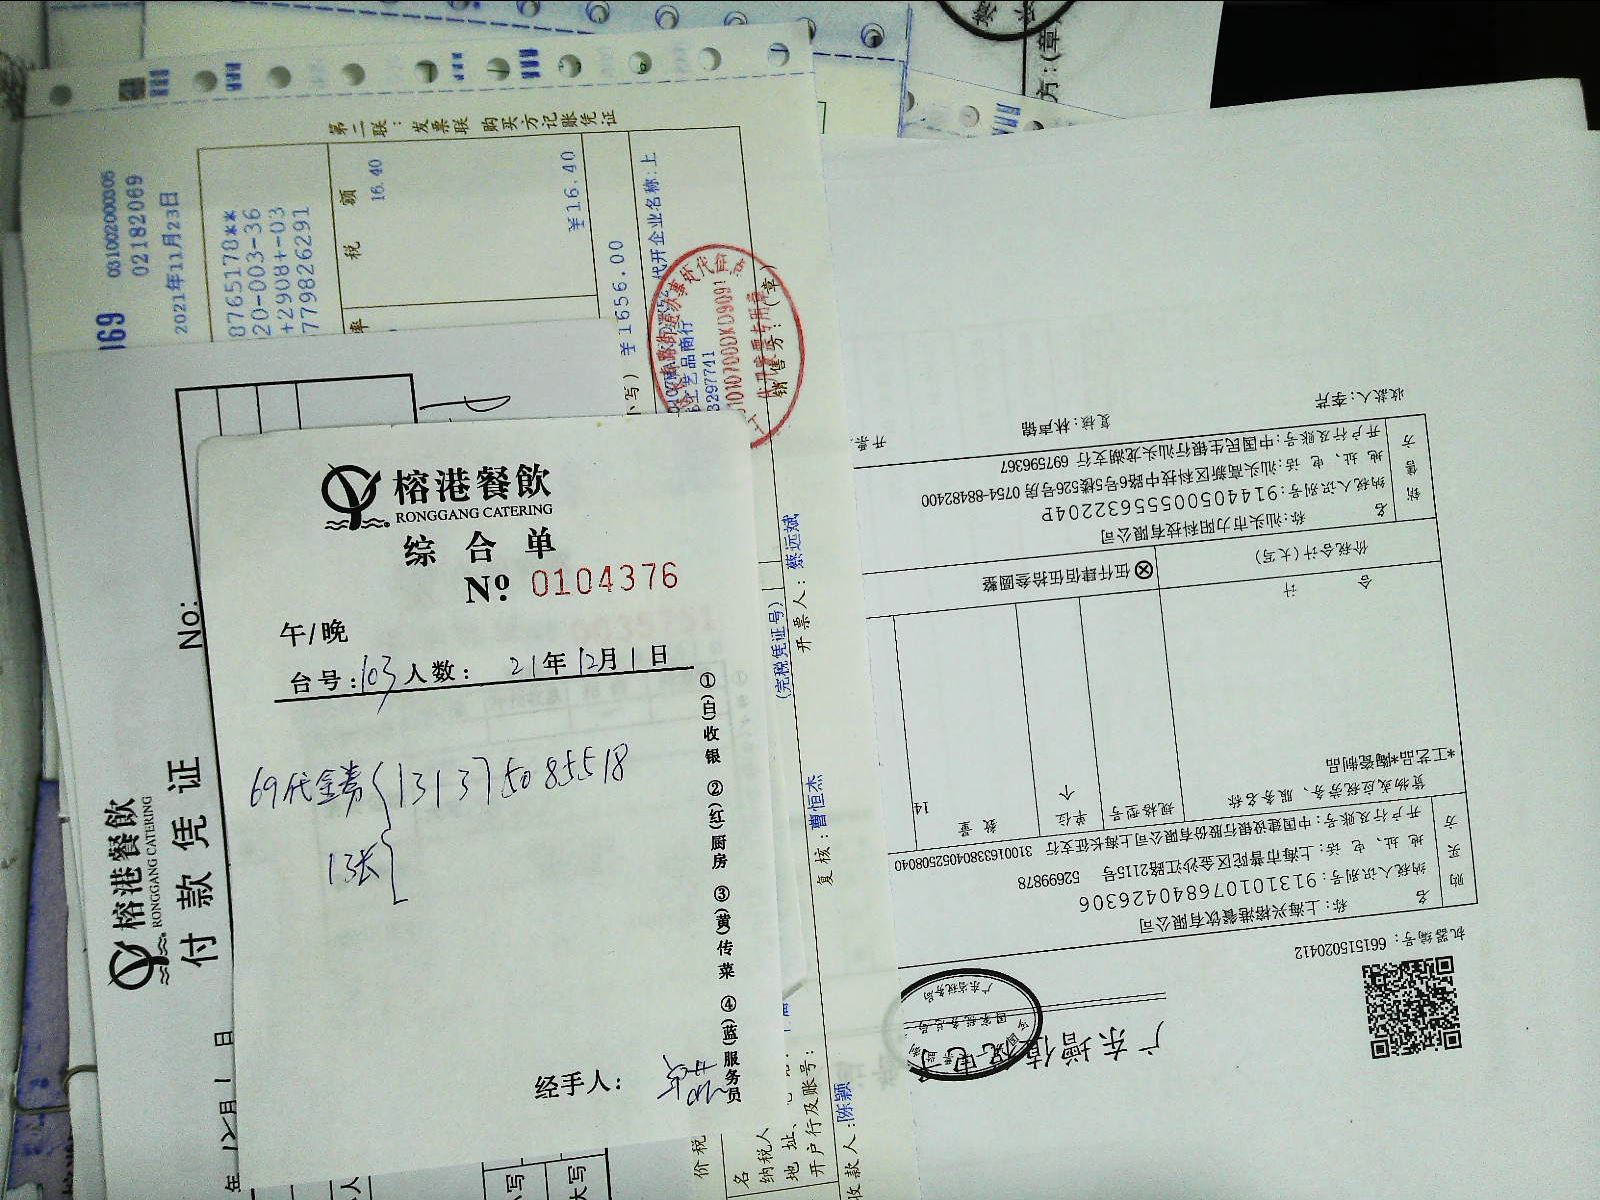 榕港餐飲
RONGGANG CATERING
综合单
Nº 0104376
午/晚
台号:103 人数: 21年12月1日
69代金券 13137508 5518
13张
经手人:
①(白)收银 ②(红)厨房 ③(黄)传菜 ④(蓝)服务员
榕港餐飲
RONGGANG CATERING
付款凭证
No:
年 12月1日
第二联:发票联 购买方记账凭证
031002000306
02182069
2021年11月23日
8765178**
20-003-36
+2908+-03
779826291
税 额
16.40
¥16.40
小写) ¥1656.00
代开企业名称:上
艺品商行
3297741
销售方:(章)
(完税凭证号)
开票人: 蔡远斌
复核: 曹恒杰
收款人: 陈颖
价税
名
纳税人
地址、
开户行及账号:
广东增值税电子
机器编号: 661515020412
购买方
名 称:上海兴榕港餐饮有限公司
纳税人识别号:913101076840426306
地址、电话:上海市普陀区金沙江路2115号 52699878
开户行及账号:中国建设银行股份有限公司上海长征支行 31001633804052508040
货物或应税劳务、服务名称 规格型号 单位 数量
*工艺品*陶瓷制品 个 14
合 计
价税合计(大写) ⊗伍仟肆佰伍拾叁圆整
销售方
名 称:汕头市力阳科技有限公司
纳税人识别号:91440500555632204P
地址、电话:汕头高新区科技中路6号5楼526号房 0754-88482400
开户行及账号:中国民生银行汕头龙湖支行 697596367
收款人:李芹 复核:林声锦 开票